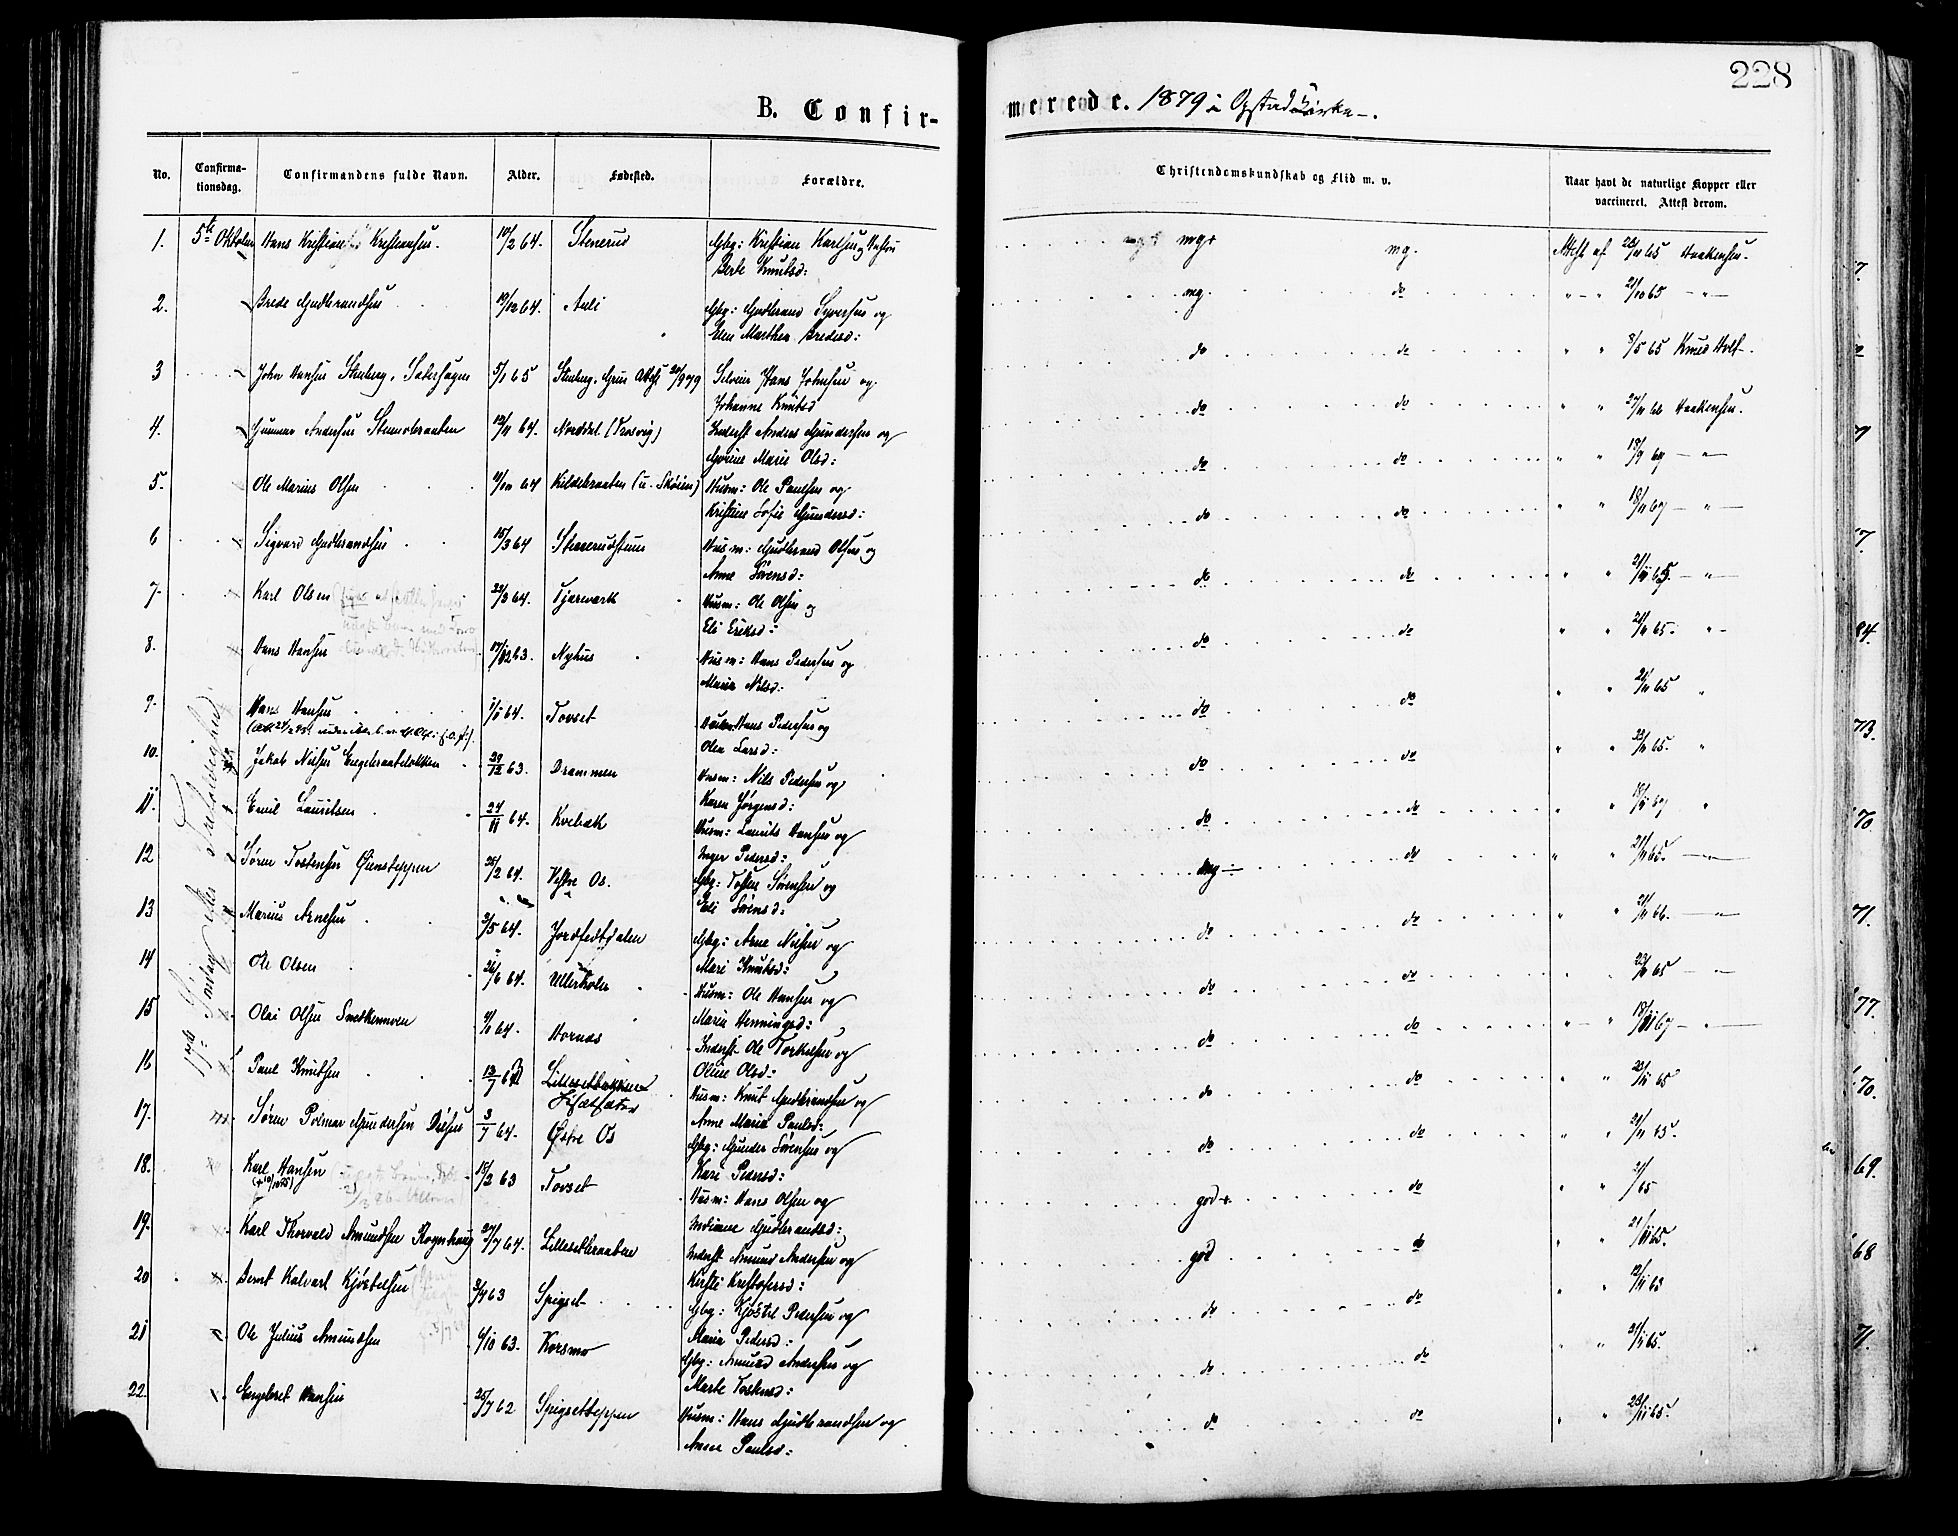 228
B. Confir-
merede. 1879 i Opstad Kirke.
No.
Confirma-
tionsdag.
Confirmandens fulde Navn.
Alder.
Fødested.
Forældre.
Christendomskundskab og Flid m. v.
Naar havt de naturlige Kopper eller
vaccineret. Attest derom.
1. 5te Oktober Hans Kristian Kristiansen. 10/2 64. Stenerud Gbg: Kristian Karlsen og Hustru mg+ mg. Attest af 23/11 65 Haakensen.
Berte Knutsd:
2. Brede Gudbrandsen 19/12 64. Auli Gbg: Gudbrand Syversen og mg. do 21/10 65
Elen Marthea Bredesd:
3 John Hansen Stenberg, Sæterhagen 5/1 65 Stenberg, Grue Attest 30/9 79 Selveier Hans Johnsen og do do 8/5 65 Knud Holt.
Johanne Knutsd
4. Gunnar Andersen Stenerbraaten 12/11 64. Norddal. (Trosvig) Inderst Anders Gundersen og do do 27/11 66 Haakensen.
Gorine Marie Olsd:
5. Ole Marius Olsen 9/10 64 Kildebraaten (u. Skøien) Husm: Ole Paulsen og do do 18/9 69
Kristine Sofie Gundersd:
6 Sigvard Gudbrandsen 15/3 64 Stenerudstuen Husm: Gudbrand Olsen og do do 18/11 67
Anne Sørensd:
7. Karl Olsen 22/3 64. Tjernverk Husm: Ole Olsen og do do 21/11 65.
Eli Eriksd:
8. Hans Hansen 17/12 63. Nyhus Husm: Hans Pedersen og do do 21/11 65.
Marie Nilsd:
9. Hans Hansen 1/1 64. Tovset Hans Pedersen og do do 21/11 65
Olea Larsd:
10. Jakob Nilsen Engebraatebakken 29/12 63. Drammen Husm: Nils Pedersen og do do 23/11 65.
Karen Jørgensd:
17de Søndag efter Trefoldighed
11. Emil Lauritsen 24/11 64. Kvebæk Husm: Laurits Hansen og do do 18/11 67
Inger Pedersd:
12 Søren Tostensen Øiensteppen 25/2 64. Vestre Os. Gbg: Tosten Sørensen og mg÷ do 21/11 65.
Eli Sørensd:
13 Marius Arnesen 3/5 64. Jordfedtdalen Gbg: Arne Nilsen og do do 21/11 66.
Mari Knutsd:
14 Ole Olsen 26/6 64. Ullerholen Husm: Ole Hansen og do do 23/11 65
Marie Henningsd:
15 Olai Olsen Snekkermoen 4/1 64. Hornæs Inderst Ole Torkelsen og do do 18/11 67
Oline Olsd:
16 Paul Knutsen 13/7 63 Lillesetbakken Husm: Knut Gudbrandsen og do do 23/11 65
Anne Marie Paulsd:
17. Søren Polmar Gundersen 3/7 64. Østre Os Gbg: Gunder Sørensen og do do 21/11 65.
Kari Pedersd:
18. Karl Hansen 18/2 63 Tovset Husm: Hans Olsen og god+ do 21/ 65
Indiane Gudbrandsd:
19. Karl Thorvald Amundsen Rognhaug 27/7 64. Lillesetbraaten Inderst Amund Andersen og god do 21/11 65.
Kirsti Kristofersd:
20 Bernt Kalvart Kjøstelsen 3/4 63 Spigset Gbg: Kjøstel Pedersen og do do 12/11 63
Maria Pedersd:
21 Ole Julius Amundsen 4/10 63. Korsmo Gbg: Amund Andersen og do do 21/11 65.
Marte Tostensd:
22. Engebret Hansen 25/7 62 Spigsetteppen Husm: Hans Gudbrandsen og do do 23/11 65.
Anne Paulsd:
84.
73.
70
71.
77.
70.
69.
68
71.